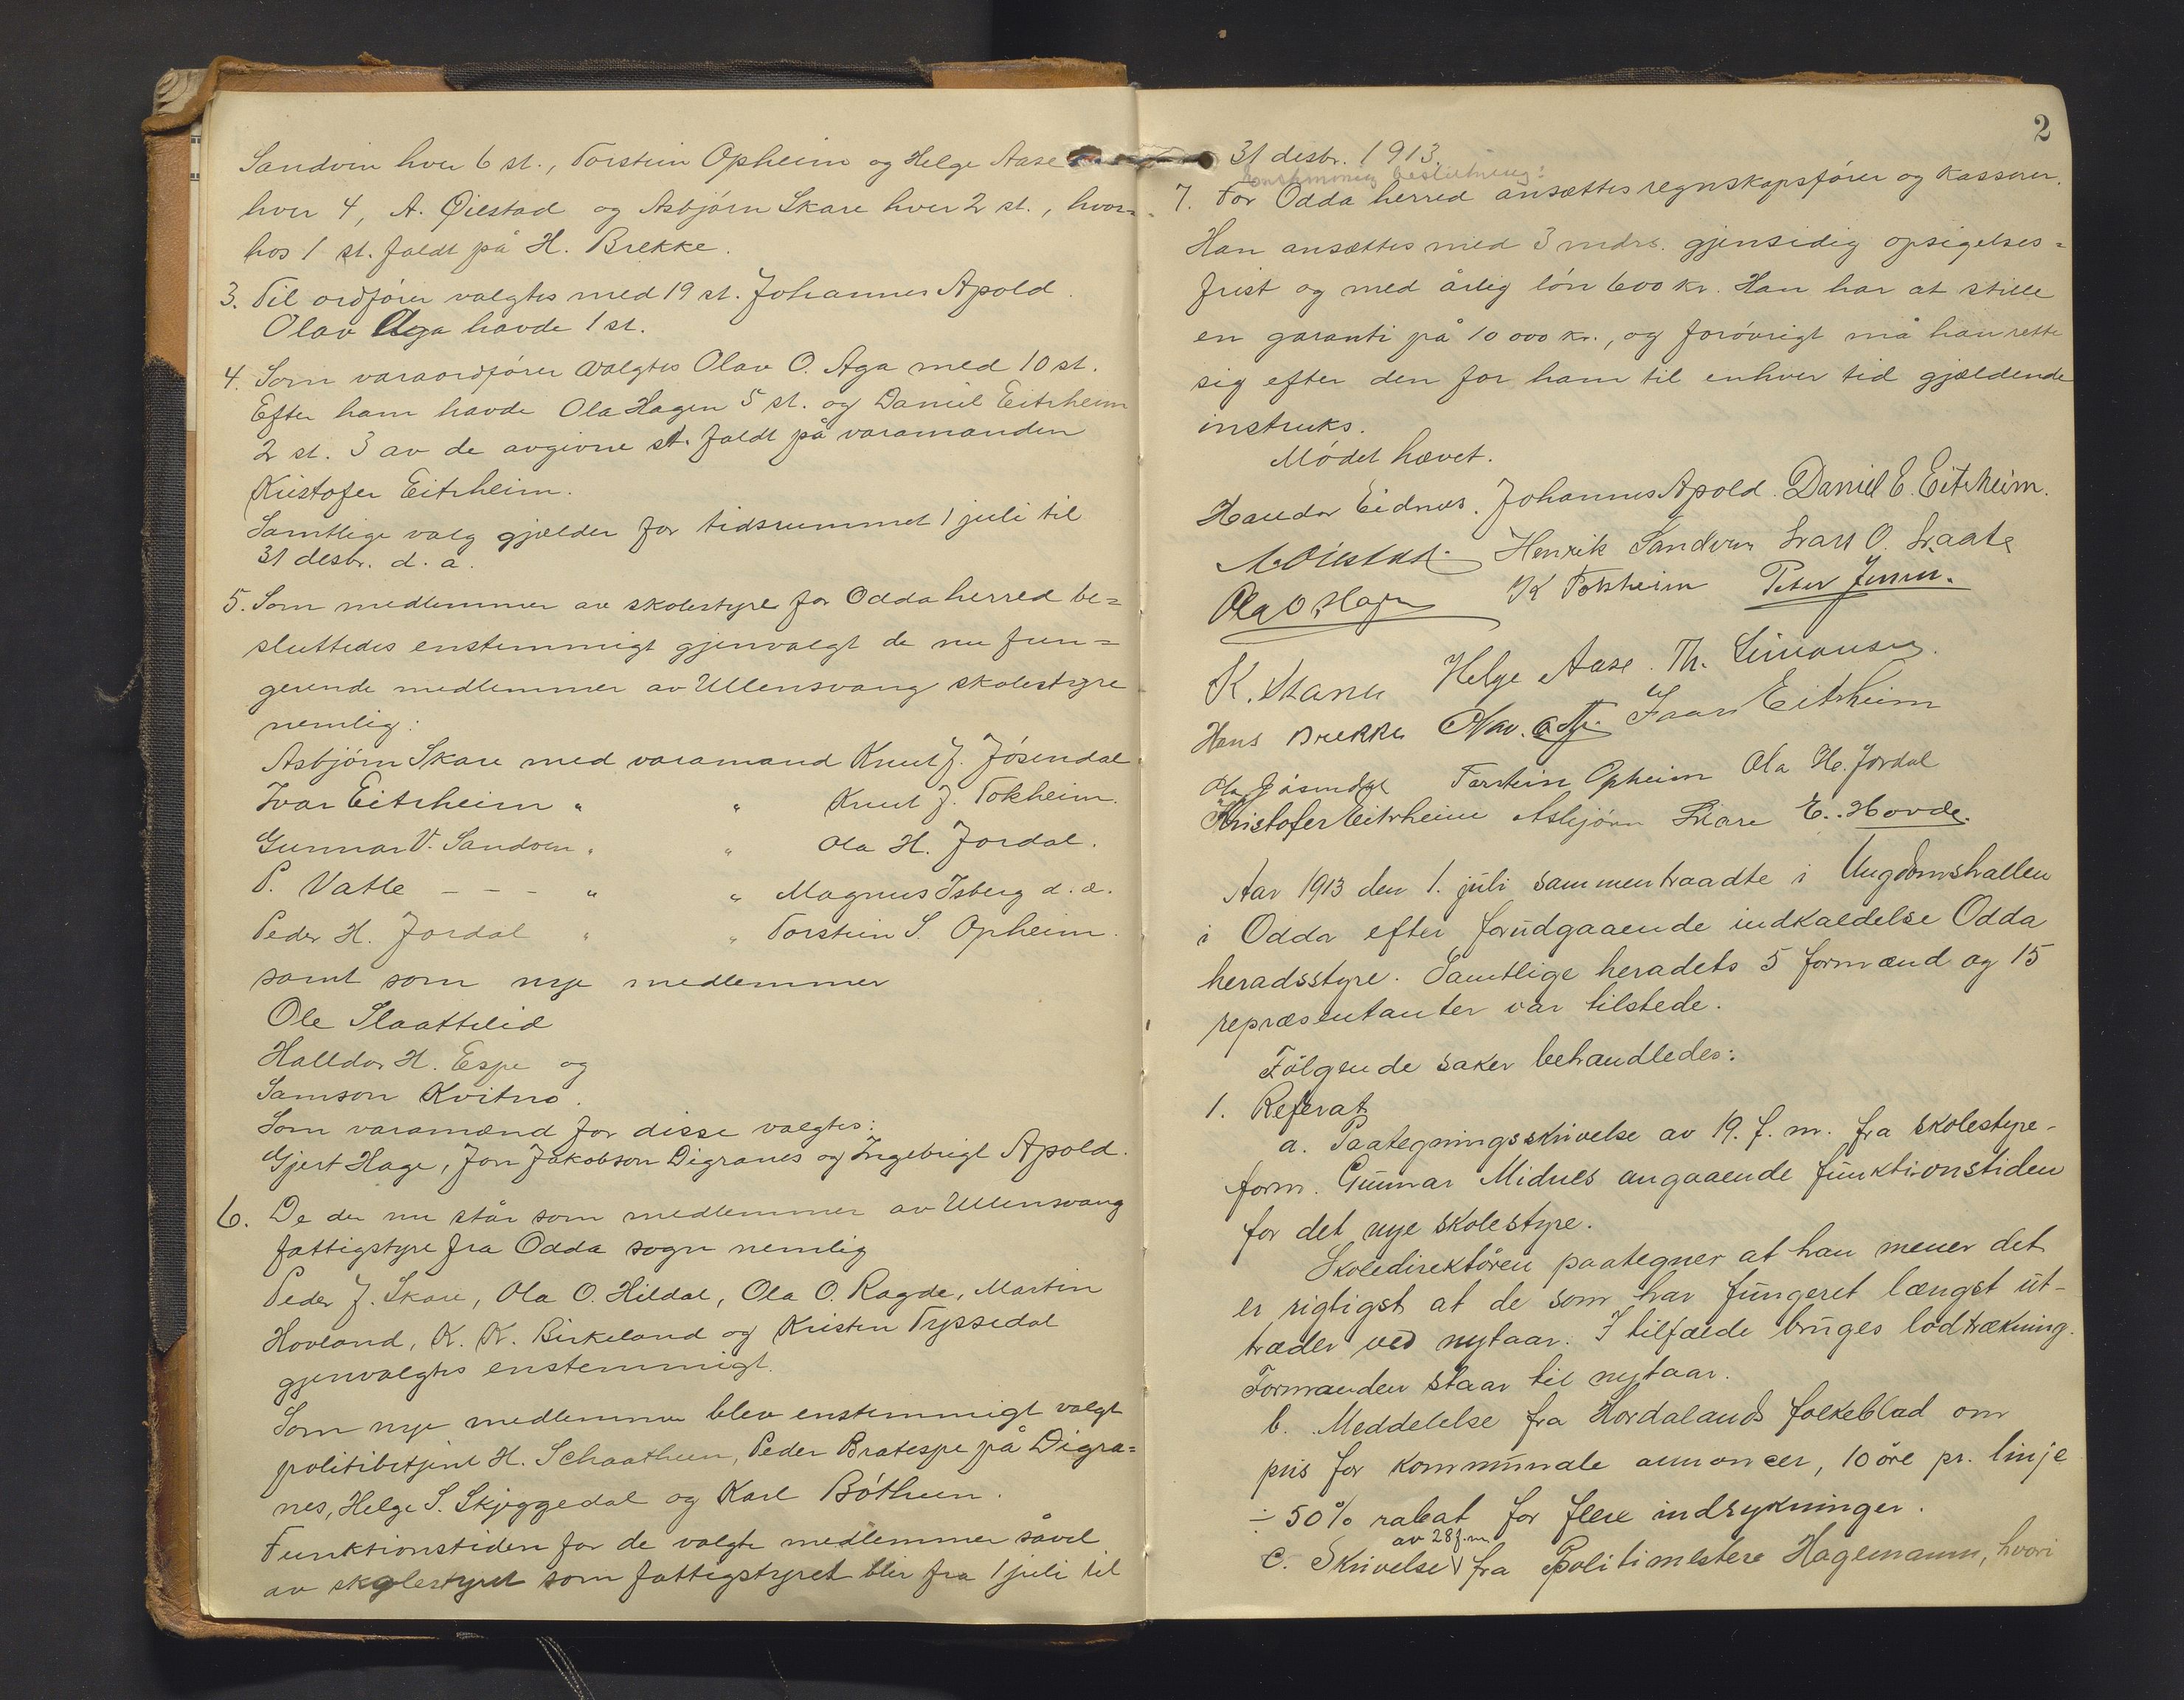 Sandvin hver 6 st., Torstein Opheim og Helge Aase
hver 4, A. Øiestad og Asbjørn Skare hver 2 st., hvor=
hos 1 st. faldt på H. Brekke.
3. Til ordfører valgtes med 19 st. Johannes Apold.
Olav Aga havde 1 st.
4. Som varaordfører valgtes Olav O. Aga med 10 st.
Efter ham havde Ola Hagen 5 st. og Daniel Eitrheim
2 st. 3 av de avgivne st. faldt på varamanden
Kristofer Eitrheim.
Samtlige valg gjælder for tidsrummet 1 juli til
31 desbr. d. a.
5. Som medlemmer av skolestyre for Odda herred be=
sluttedes enstemmigt gjenvalgt de nu fun=
gerende medlemmer av Ullensvang skolestyre
nemlig:
Asbjørn Skare med varamand Knut J. Jøsendal
Ivar Eitrheim " " Knut J. Tokheim.
Gunnar V. Sandven " " Ola H. Jordal.
P. Vatle - - - " " Magnus Isberg d. æ.
Peder H. Jordal " " Torstein S. Opheim.
samt som nye medlemmer
Ole Slaattelid
Halldor H. Espe og
Samson Kvitno.
Som varamænd for disse valgtes:
Gjert Hage, Jon Jakobson Digranes og Ingebrigt Apold.
6. De der nu står som medlemmer av Ullensvang
fattigstyre fra Odda sogn nemlig
Peder J. Skare, Ola O. Hildal, Ola O. Ragde, Martin
Hovland, K. K. Birkeland og Kristen Tyssedal
gjenvalgtes enstemmigt.
Som nye medlemmer blev enstemmigt valgt
politibetjent H. Schaathun, Peder Bratespe på Digra=
nes, Helge S. Skjeggedal og Karl Bøthun.
Funktionstiden for de valgte medlemmer såvel
av skolestyret som fattigstyret blir fra 1 juli til
2
31 desbr. 1913.
Enstemmig beslutning:
7. For Odda herred ansættes regnskapsfører og kasserer.
Han ansættes med 3 mdrs. gjensidig opsigelses=
frist og med årlig løn 600 kr. Han har at stille
en garanti på 10 000 kr., og forøvrigt må han rette
sig efter den for ham til enhver tid gjældende
instruks.
Mødet hævet.
Haldor Eidnes. Johannes Apold. Daniel E. Eitrheim.
A. Øiestad Henrik Sandven Lars O. Laate
Ola O. Hagen K Tokheim Peter Jensen.
K. Helge Aase. Th. Simonsen.
Hans Brekke Olav. O. Aga. Ivar Eitrheim
Ola Jøsendal Torstein Opheim Ola H. Jordal
Kristofer Eitrheim Asbjørn Skare E. Hovde.
Aar 1913 den 1. juli sammentraadte i Ungdomshallen
i Odda efter forudgaaende indkaldelse Odda
heradsstyre. Samtlige heradets 5 formænd og 15
repræsentanter var tilstede.
Følgende saker behandledes:
1. Referat
a. Paategningsskrivelse av 19. f. m. fra skolestyre-
form. Gunnar Midnes angaaende funktionstiden
for det nye skolestyre.
Skoledirektøren paategner at han mener det
er rigtigst at de som har fungeret længst ut-
træder ved nytaar. I tilfælde bruges lodtrækning.
Formanden staar til nytaar.
b. Meddelelse fra Hordalands folkeblad om
pris for kommunale annoncer, 10 øre pr. linje
÷ 50% rabat for flere indrykninger.
av 28 f.m.
c. Skrivelse fra Politimester Hagemann, hvori